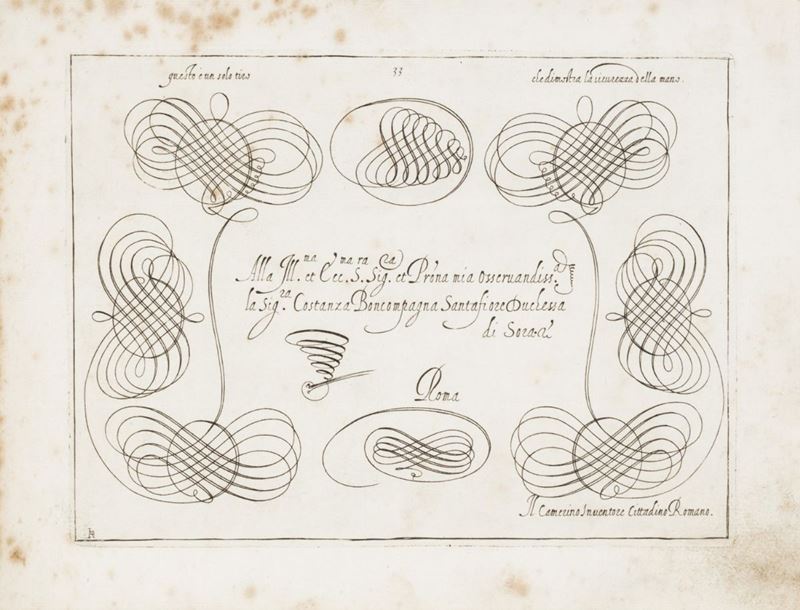 questo è un solo tiro
33
che dimostra la sicurezza della mano.
Alla Ill.ma et Ecc.ma S.ra Sig.ra et Prona mia Osservandiss.a
la Sig.ra Costanza Boncompagna Santafiore Duchessa
di Sora.
Roma
Il Camerino Inventore Cittadino Romano.